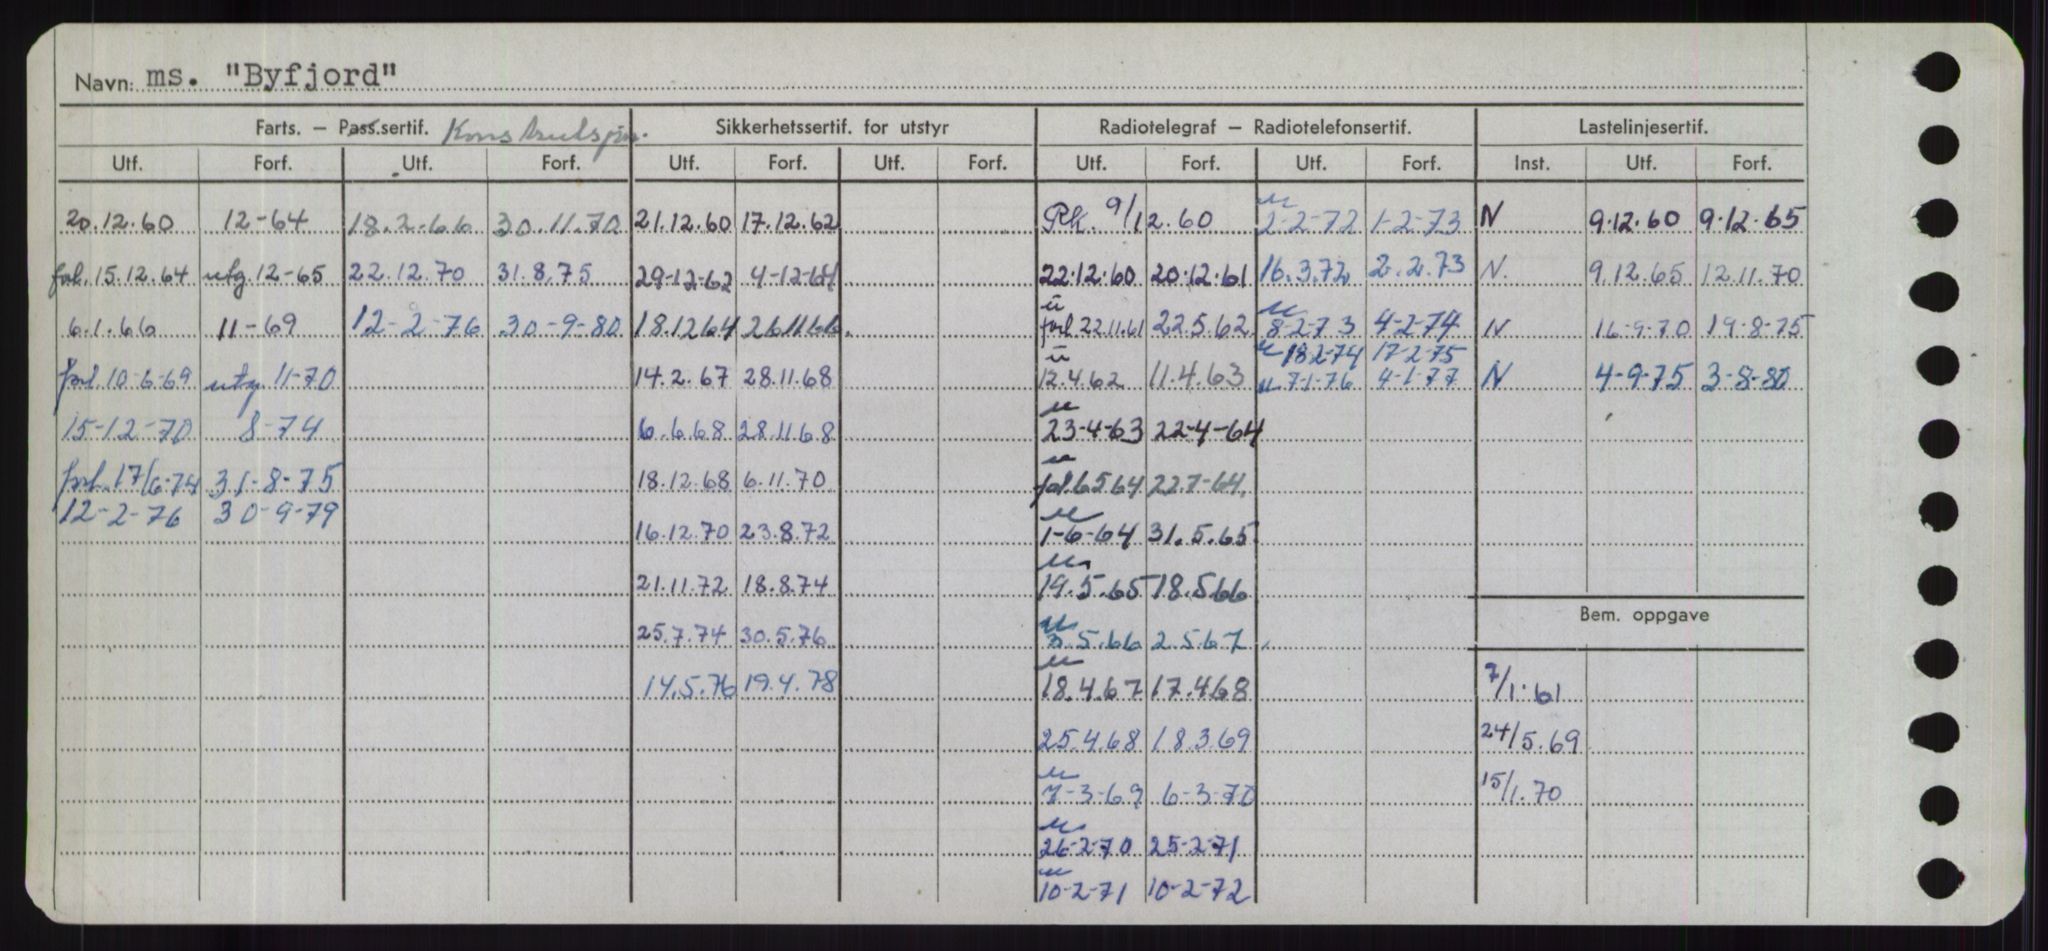 Navn: ms. "Byfjord"
Farts. – Pass.sertif. Sikkerhetssertif. for utstyr Radiotelegraf – Radiotelefonsertif. Lastelinjesertif.
Utf. Forf. Utf. Forf. Utf. Forf. Utf. Forf. Utf. Forf. Utf. Forf. Inst. Utf. Forf.
20.12.60 12-64 18.2.66 30.11.70 21.12.60 17.12.62 Rk. 9/12.60 u 2-2-72 1-2-73 N 9.12.60 9.12.65
forl. 15.12.64 utg. 12-65 22.12.70 31.8.75 29-12-62 4-12-64 22.12.60 20.12.61 16.3.72 2.2.73 N. 9.12.65 12.11.70
6.1.66 11-69 12-2-76 30-9-80 18.12 64 26 11 66. u forl 22.11.61 22.5.62. u 8-2-73 4-2-74 N 16-9-70 19-8-75
u 18 2-74 17-2-75
forl. 10-6-69 utg. 11-70 14.2.67 28.11.68 u 12.4.62 11.4.63 u 7-1-76 4-1-77 N 4-9-75 3-8-80
15-12-70 8-74 6.6.68 28.11.68 u 23-4-63 22-4-64
forl. 17/6-74 31-8-75 18.12.68 6.11.70 u forl. 6 5 64 22.7-64.
12-2-76 30-9-79
16.12.70 23.8.72 u 1-6-64 31.5.65
21.11.72 18.8.74 u 19.5.65 18.5.66
25.7.74 30.5.76 u 3.5.66 2.5.67 Bem. oppgave
14.5.76 19.4.78 u 18.4.67 17.4.68 7/1.61
25.4.68 18.3.69 24/5.69
u 7-3-69 6-3-70 15/1.70
u 26-2-70 25-2-71
u 10-2-71 10-2-72